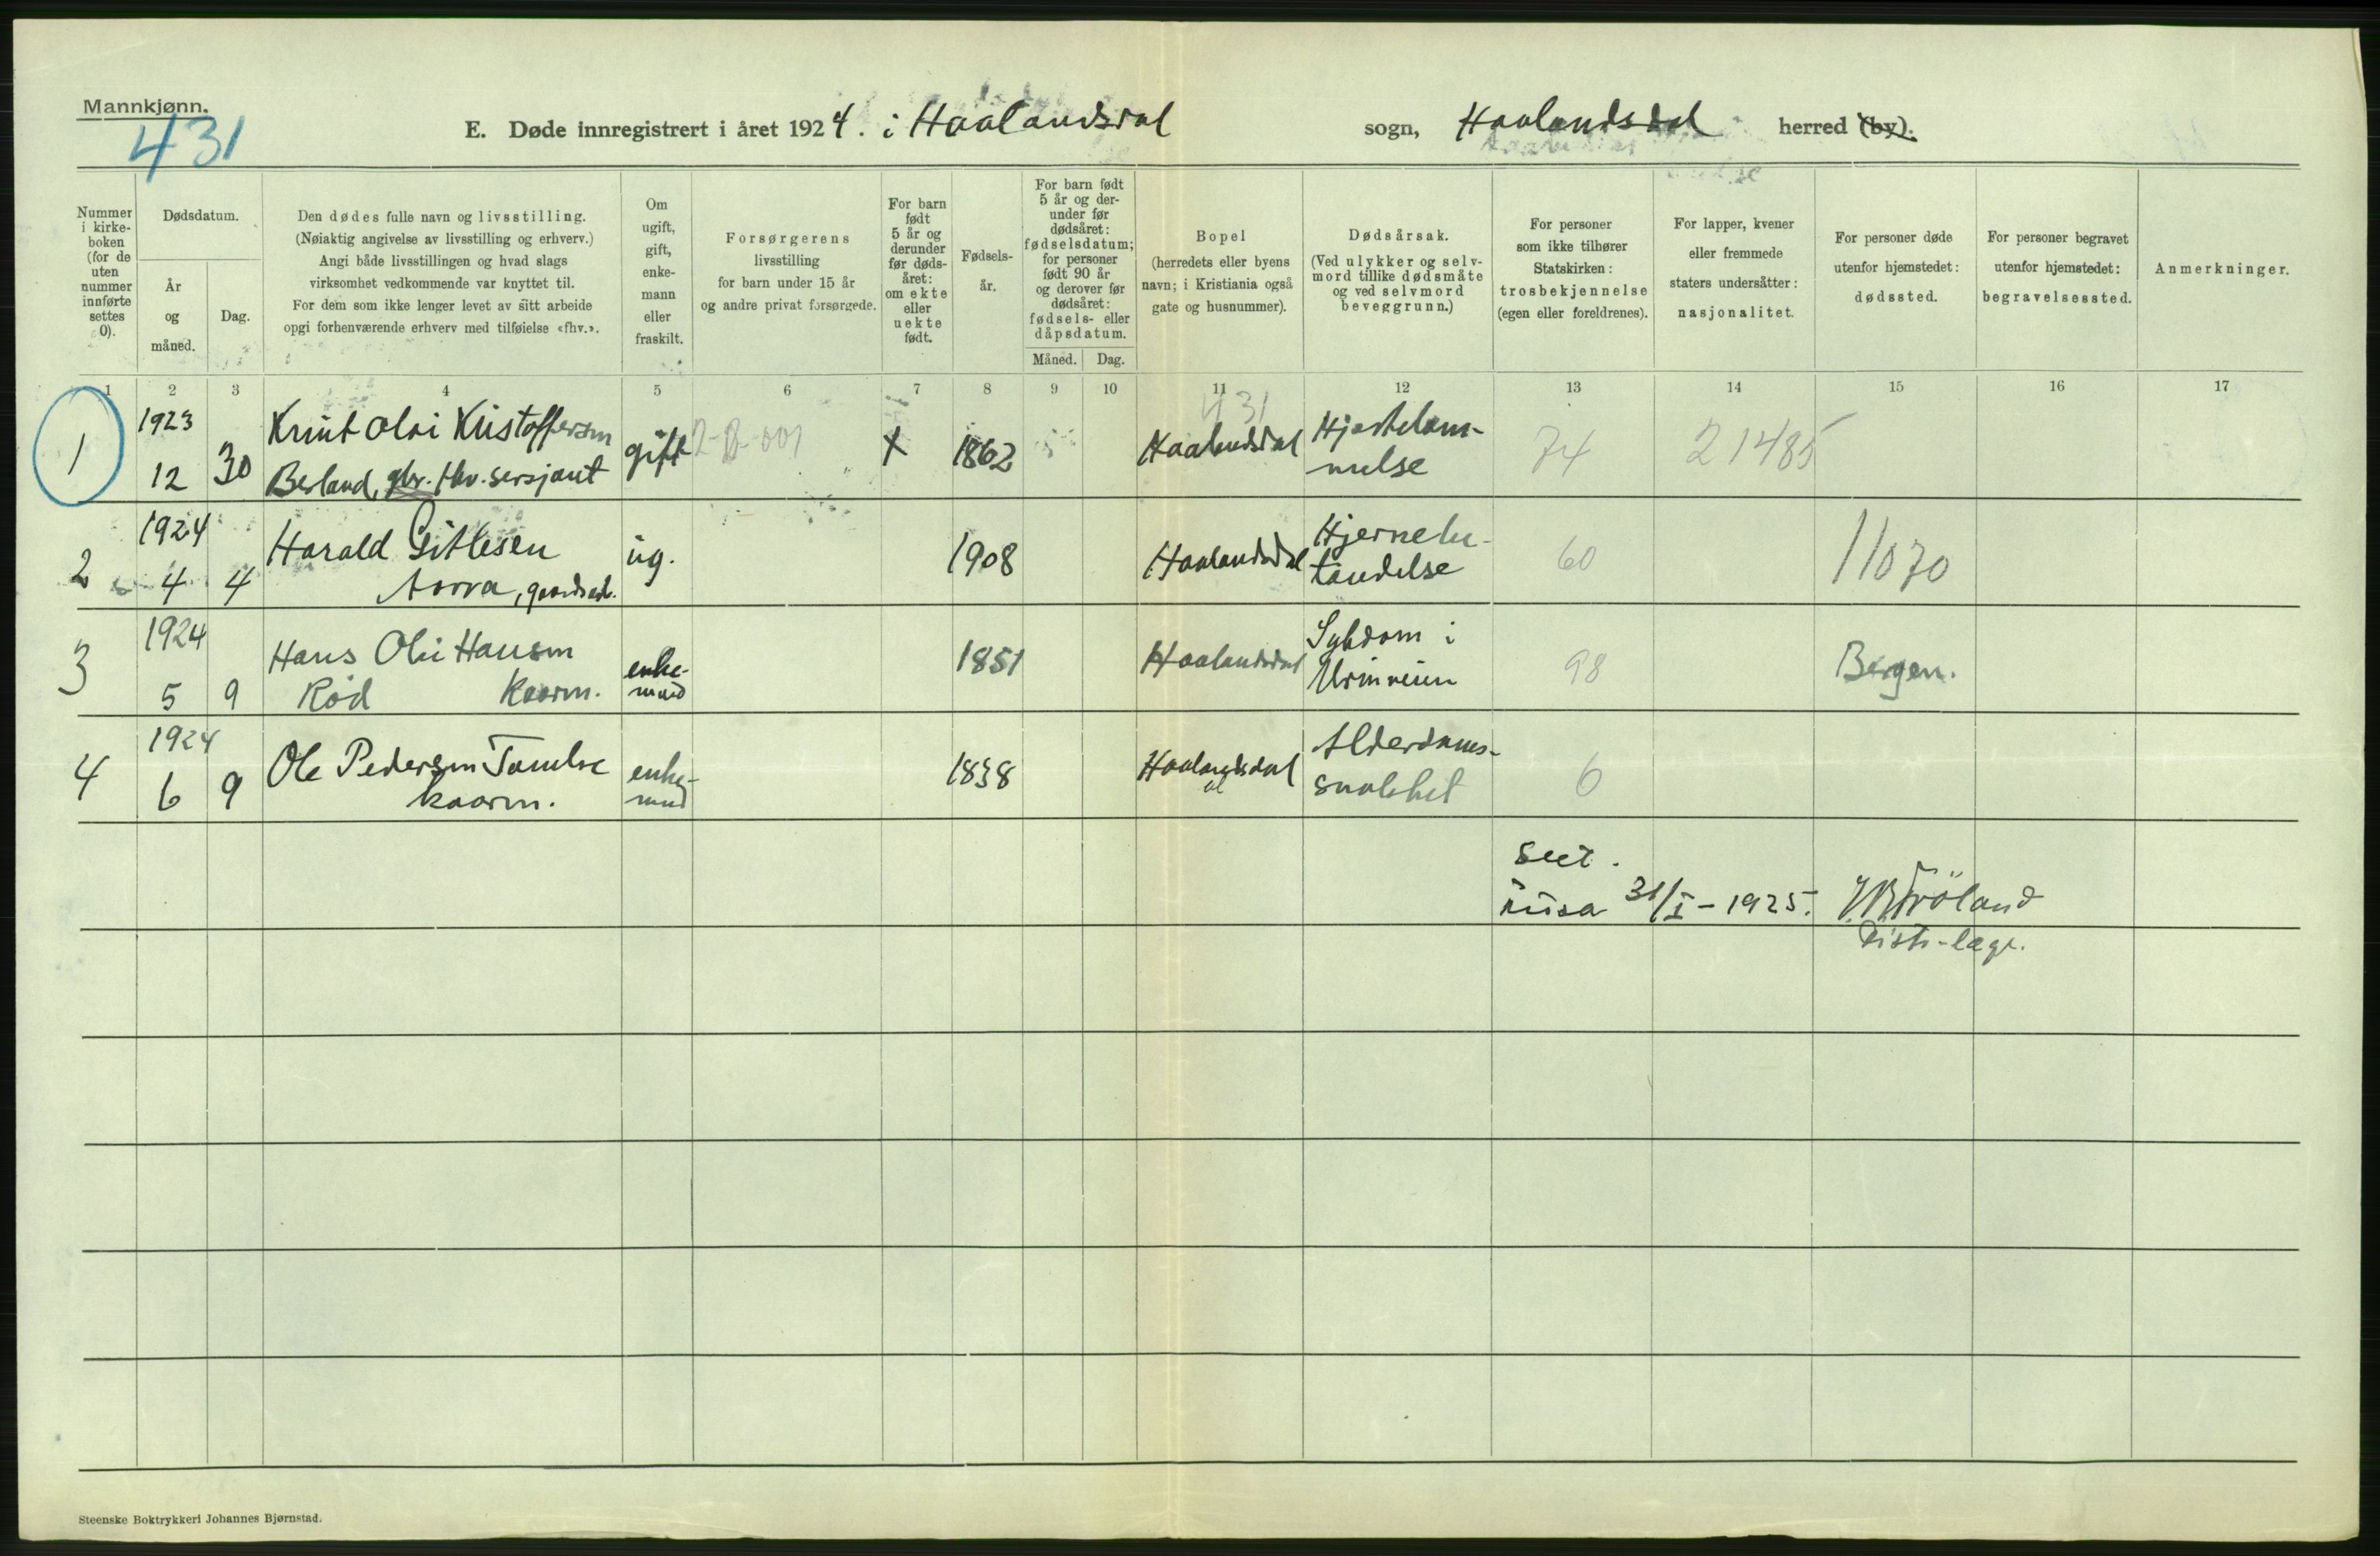 Mannkjønn.
431
E. Døde innregistrert i året 1924. i Haalandsdal sogn, Haalandsdal herred (by).
Nummer i kirke-boken (for de uten nummer innførte settes 0).
Dødsdatum.
År og måned.
Dag.
Den dødes fulle navn og livsstilling.
(Nøiaktig angivelse av livsstilling og erhverv.)
Angi både livsstillingen og hvad slags
virksomhet vedkommende var knyttet til.
For dem som ikke lenger levet av sitt arbeide
opgi forhenværende erhverv med tilføielse «fhv.».
Om ugift, gift, enke-mann eller fraskilt.
Forsørgerens
livsstilling
for barn under 15 år
og andre privat forsørgede.
For barn født 5 år og derunder før døds-året: om ekte eller uekte født.
Fødsels-år.
For barn født 5 år og der-under før dødsåret: fødselsdatum; for personer født 90 år og derover før dødsåret: fødsels- eller dåpsdatum.
Måned. Dag.
Bopel
(herredets eller byens
navn; i Kristiania også
gate og husnummer).
Dødsårsak.
(Ved ulykker og selv-
mord tillike dødsmåte
og ved selvmord
beveggrunn.)
For personer
som ikke tilhører
Statskirken:
trosbekjennelse
(egen eller foreldrenes).
For lapper, kvener
eller fremmede
staters undersåtter:
nasjonalitet.
For personer døde
utenfor hjemstedet:
dødssted.
For personer begravet
utenfor hjemstedet:
begravelsessted.
Anmerkninger.
1 2 3 4 5 6 7 8 9 10 11 12 13 14 15 16 17
431
1 1923 12 30 Knut Olai Kristoffersen
Berland, gbr. fhv. sersjant gift X 1862 Haalandsdal Hjertelam-
melse 74 21485
2 1924 4 4 Harald Gitlesen
, gaardsarb. ug. 1908 Haalandsdal Hjernebe-
tændelse 60 11070
3 1924 5 9 Hans Olai Hansen
Röd kaarm. enke-
mand 1851 Haalandsdal Sykdom i
Urinveien 98 Bergen.
4 1924 6 9 Ole Pedersen
kaarm. enke-
mand 1838 Haalandsdal Alderdoms-
svakhet 6
Seet.
Fusa 31/I-1925. Fröland
Distr-læge.
Steenske Boktrykkeri Johannes Bjørnstad.